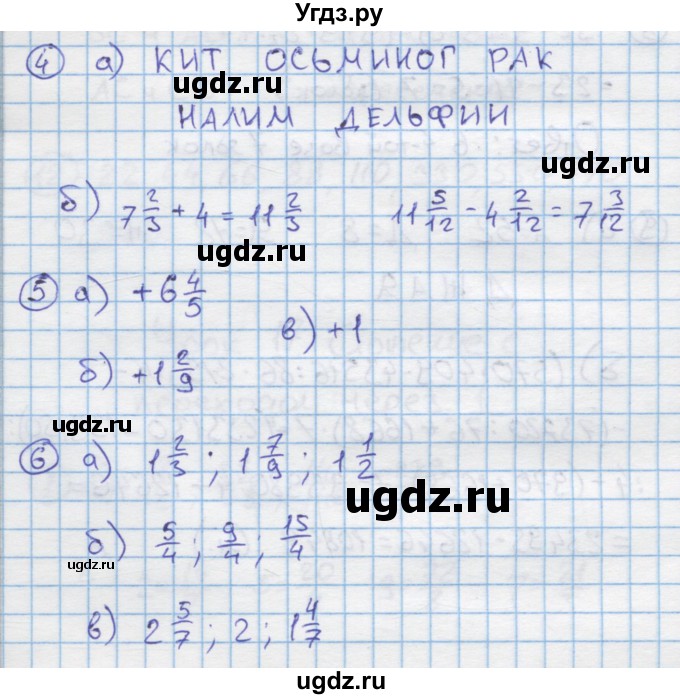 Угдз.ру
④ а) КИТ ОСЬМИНОГ РАК
ugdz.ru
ugdz.ru
НАЛИМ ДЕЛЬФИН
ugdz.ru
б) 7 2/3 + 4 = 11 2/3   11 5/12 - 4 2/12 = 7 3/12
ugdz.ru
⑤ а) +6 4/5
ugdz.ru
в) +1
б) +1 2/9
ugdz.ru
⑥ а) 1 2/3 ; 1 7/9 ; 1 1/2
ugdz.ru
б) 5/4 ; 9/4 ; 15/4
ugdz.ru
в) 2 5/7 ; 2 ; 1 4/7
ugdz.ru
Угдз.ру